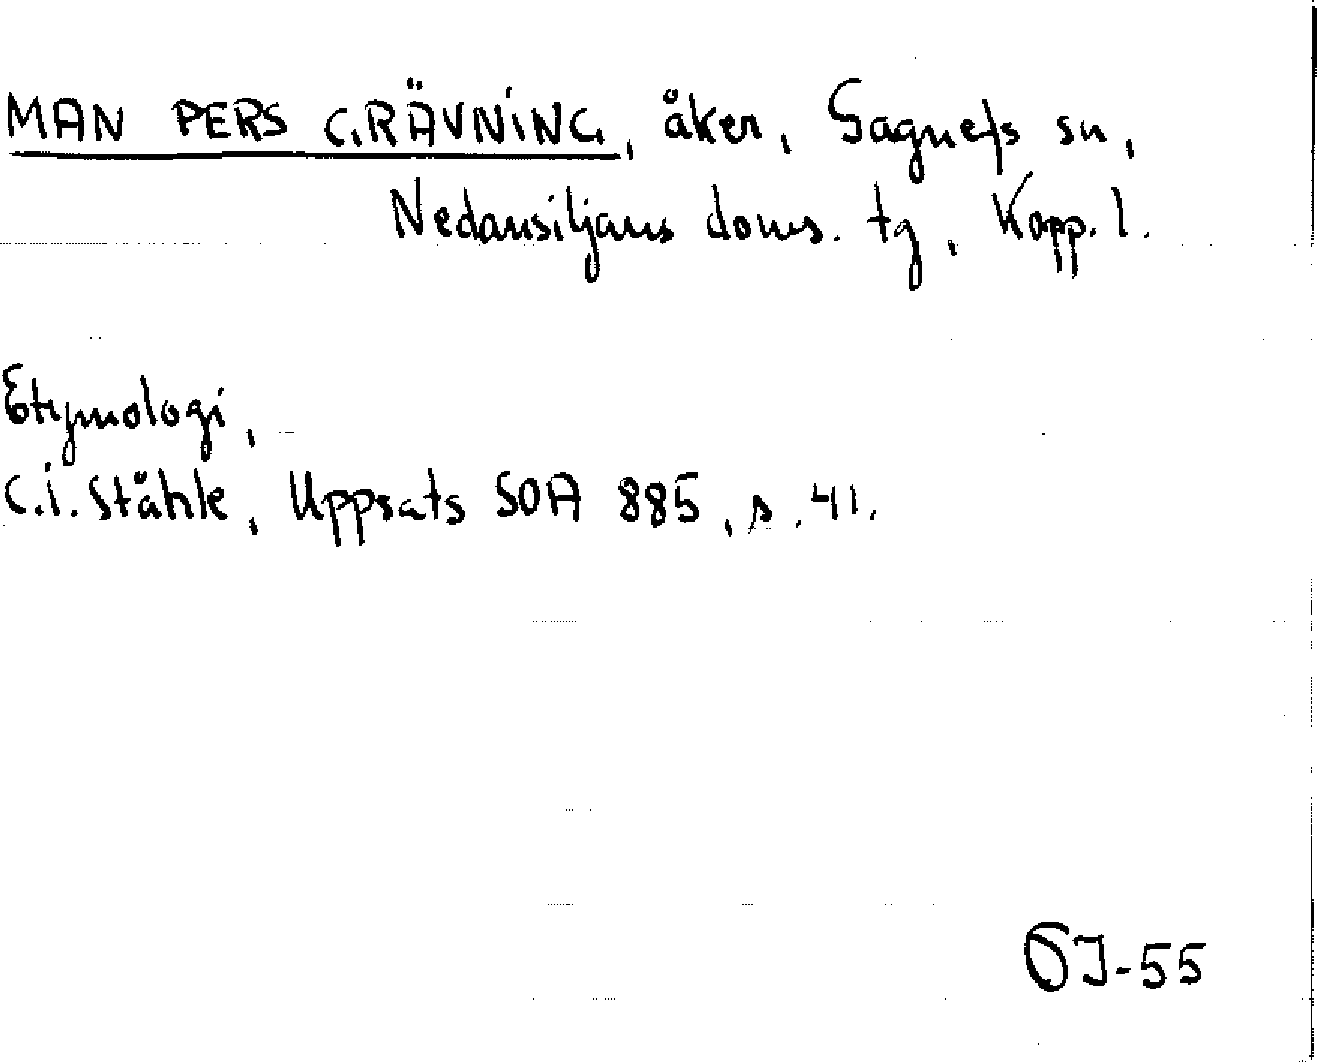 MAN PERS GRÄVNING, åker, Gagnefs sn,
Nedansiljans doms. tg, Kopp. l.
Etymologi,
C.I. Ståhle, Uppsats SOA 885, s. 41.
ÖJ-55